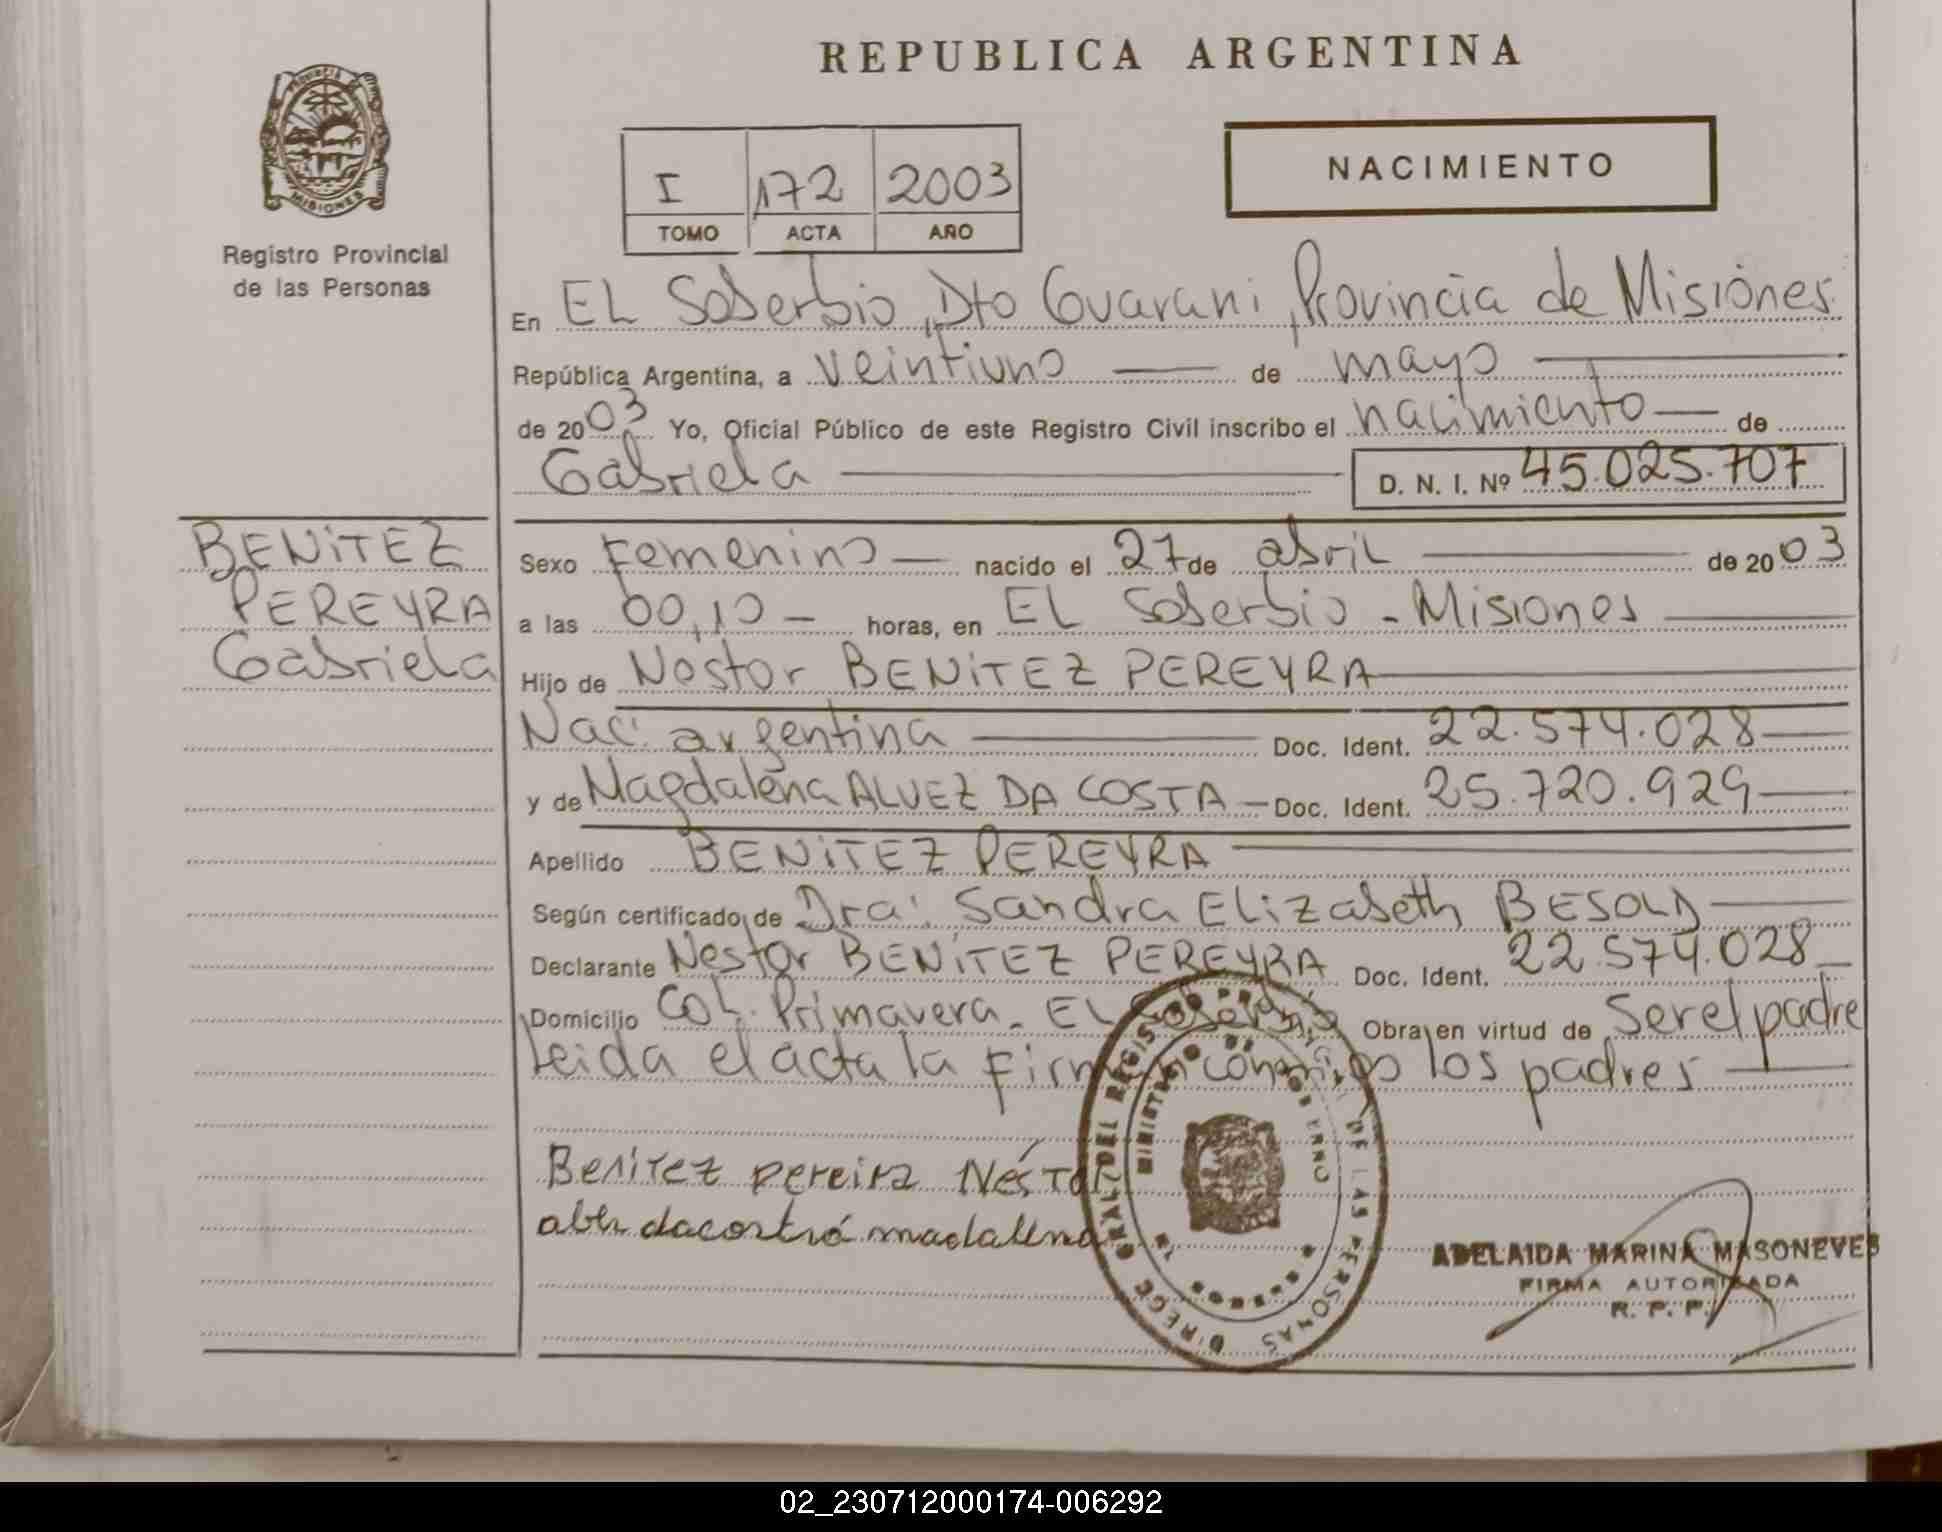 REPUBLICA ARGENTINA
PROVINCIA DE
MISIONES
Registro Provincial
de las Personas
I 172 2003
TOMO ACTA AÑO
NACIMIENTO
En EL Soberbio, Dto Guarani, Provincia de Misiones
República Argentina, a veintiuno de mayo
de 2003 Yo, Oficial Público de este Registro Civil inscribo el nacimiento de
Gabriela D. N. I. Nº 45.025.707
BENITEZ
PEREYRA
Gabriela
Sexo Femenino nacido el 27 de abril de 2003
a las 00,10 horas, en EL Soberbio - Misiones
Hijo de Nestor BENITEZ PEREYRA
Nac. argentina Doc. Ident. 22.574.028
y de Magdalena ALVEZ DA COSTA Doc. Ident. 25.720.929
Apellido BENITEZ PEREYRA
Según certificado de Dra. Sandra Elizabeth BESOLD
Declarante Nestor BENITEZ PEREYRA Doc. Ident. 22.574.028
Domicilio Col. Primavera - EL Soberbio Obra en virtud de Ser el padre
Leida el acta la firman conmigo los padres
Benitez pereira Néstor
dacosta madalena
DIRECC GRAL DEL REGISTRO PROVINCIAL DE LAS PERSONAS
MINISTERIO DE GOBIERNO
ADELAIDA MARINA MASONEVES
FIRMA AUTORIZADA
R. P. P.
02_230712000174-006292